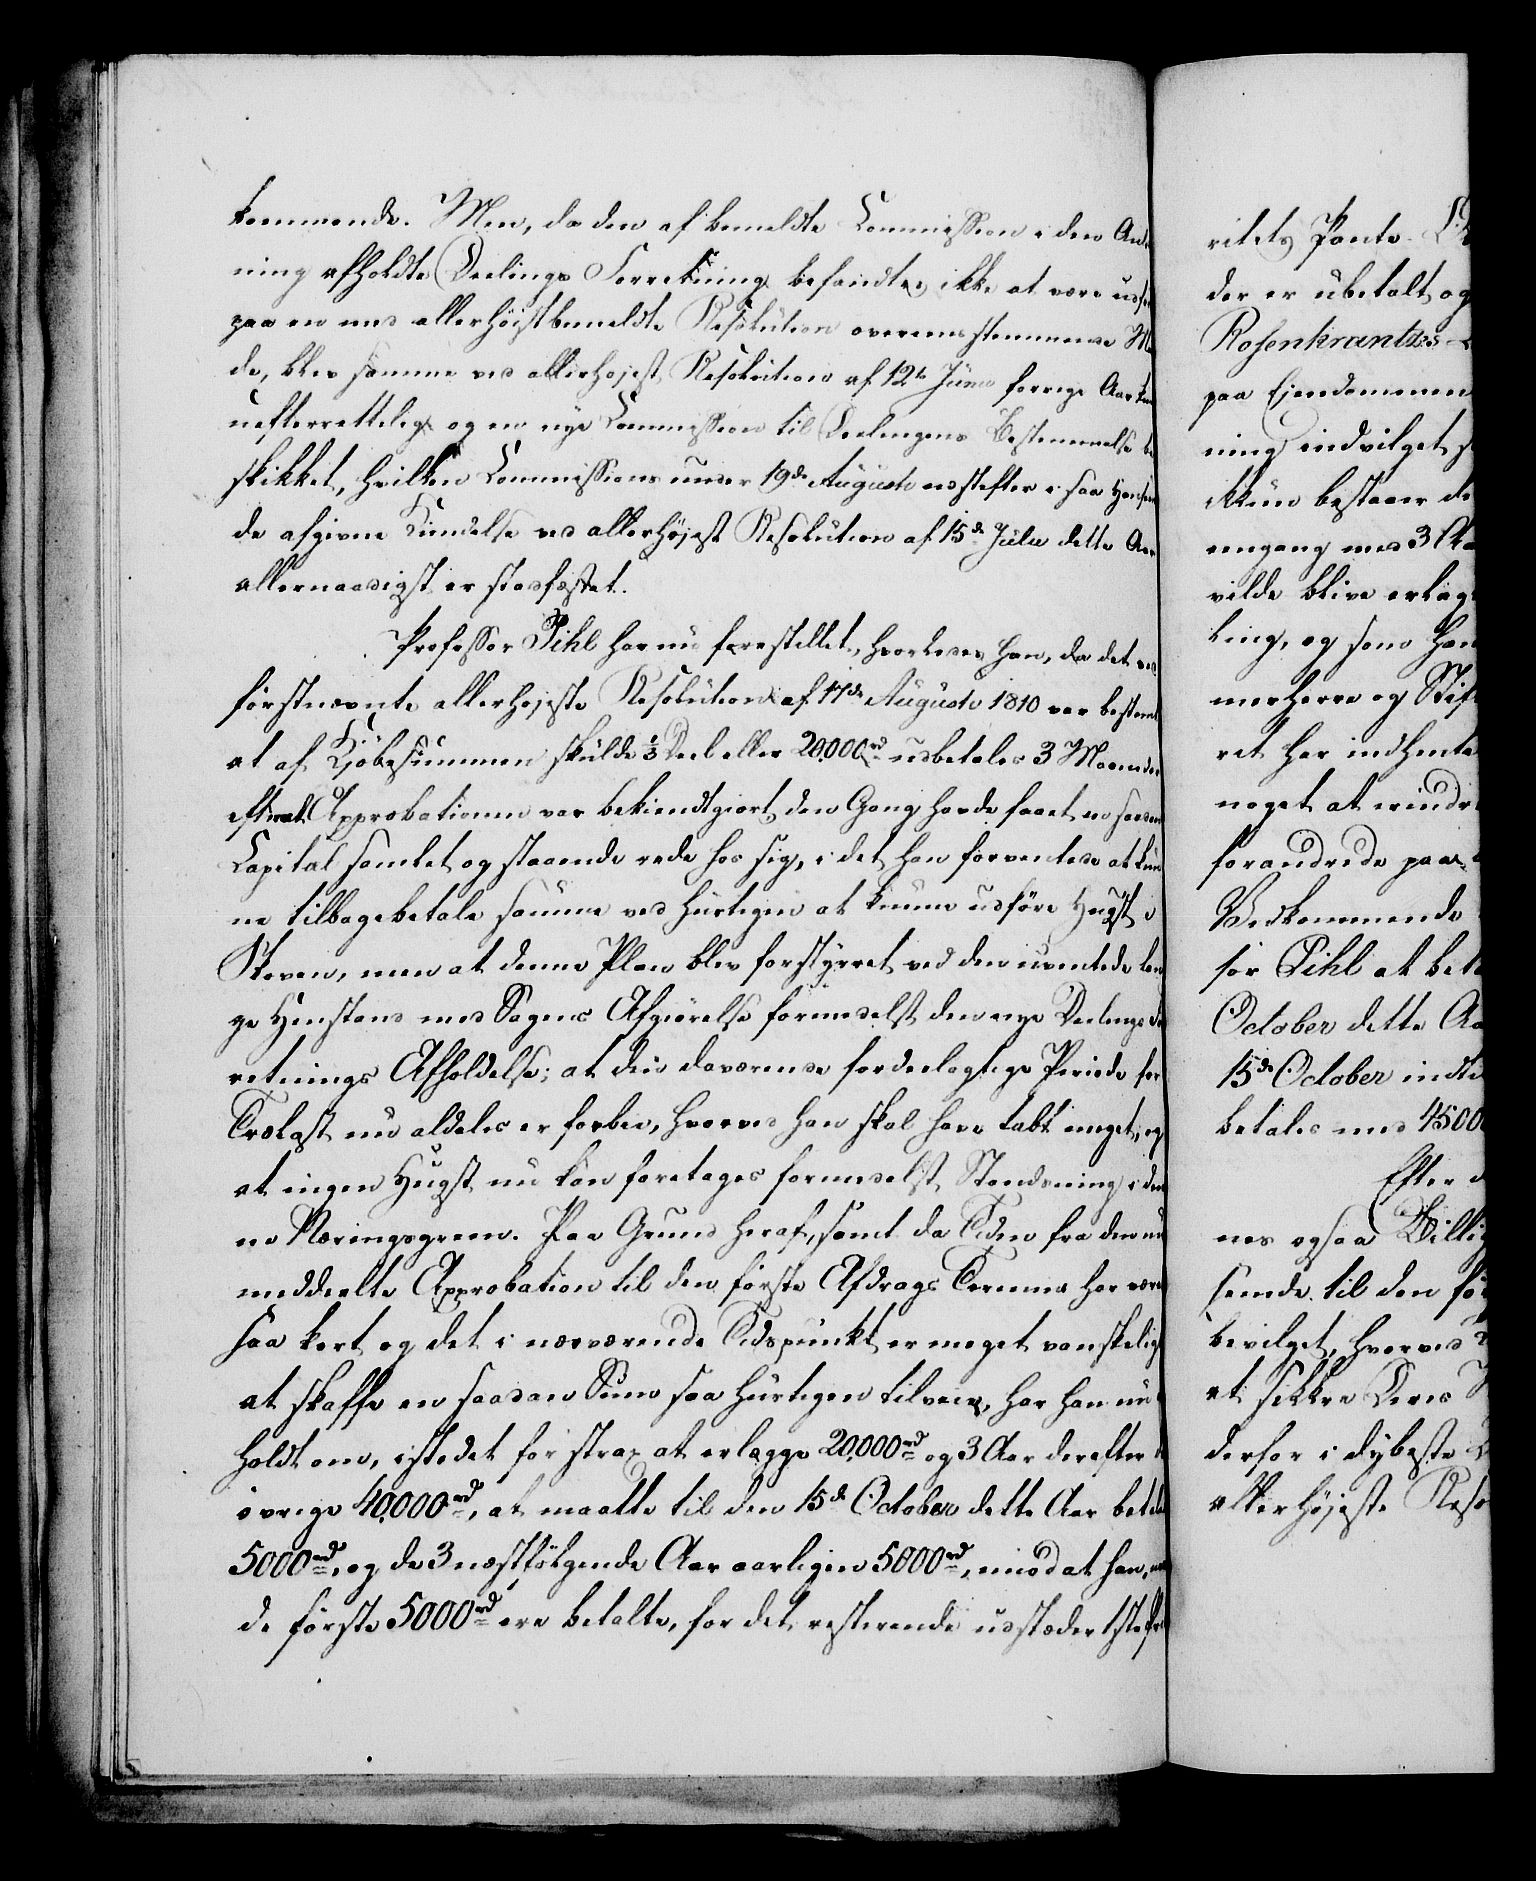 kommende. Men, da den af bemeldte Commission i den An
ning afholdte Deelings Forretning befandtes ikke at være udfø
paa en med allerhöistbemeldte Resolution overensstemmende M
de, blev samme ved allerhøjest Resolution af 12te Junii forrige Aar
uefterrettelig og en nye Commission til Deelingens Bestemmelse be
skikket, hvilken Commissions under 19de Augusti næstefter i saa Hense
de afgivne Kiendelse ved allerhøjest Resolution af 15de Julii dette Aar
allernaadigst er stadfæstet.
Professor Pihl har nu forestillet, hvorledes han, da det ved
förstnævnte allerhøjeste Resolution af 17de Augusti 1810 var bestemt
at af Kjøbesummen skulde 1/3 Deel eller 20,000 rd udbetales 3 Maaneder
efterat Approbationen var bekiendtgiort, den Gang havde faaet en saadan
Capital samlet og staaende rede hos sig, i det han forventede at kun
ne tilbagebetale samme ved hurtigen at kunne udföre Hugst i
Skoven, men at denne Plan blev forstyrret ved den uventede lan
ge Henstand med Sagens Afgiörelse formedelst den nye Deelings For
retnings Afholdelse; at den daværende fordeelagtige Periode for
Trælast nu aldeles er forbie, hvorved han skal have tabt meget, og
at ingen Hugst nu kan foretages formedelst Standsning i den
ne Næringsgreen. Paa Grund heraf, samt da Tiden fra den nu
meddeelte Approbation til den förste Afdrags Termin har været
saa kort og det i nærværende Tidspunkt er meget vanskeligt
at skaffe en saadan Sum saa hurtigen tilveie, har han nu
holdt om, istedet for strax at erlægge 20,000 rd og 3 Aar derefter de
övrige 40,000 rd, at maatte til den 15de October dette Aar betale
5000 rd, og de 3 næstfölgende Aar aarligen 5000 rd, imod at han, naar
de förste 5000 rd ere betalte, for det resterende udstæder 1ste Prio
ritets Pante
der er ubetalt og
Rosenkrantzes
paa Ejendommen
ning indvilget
ikkun bestaaer
eengang med 3
vilde blive erlagt
ling, og som han
merherre og Stift
ret har indhentet
noget at erindre
forandrede paa
Vedkommende
sor Pihl at beta
October dette Aa
15de October indtil
betales med 4500
Efter
nes ogsaa Billig
seende til den för
bevilget, hvorved
at sikkre Deres
derfor i dybeste
allerhøjeste Reso